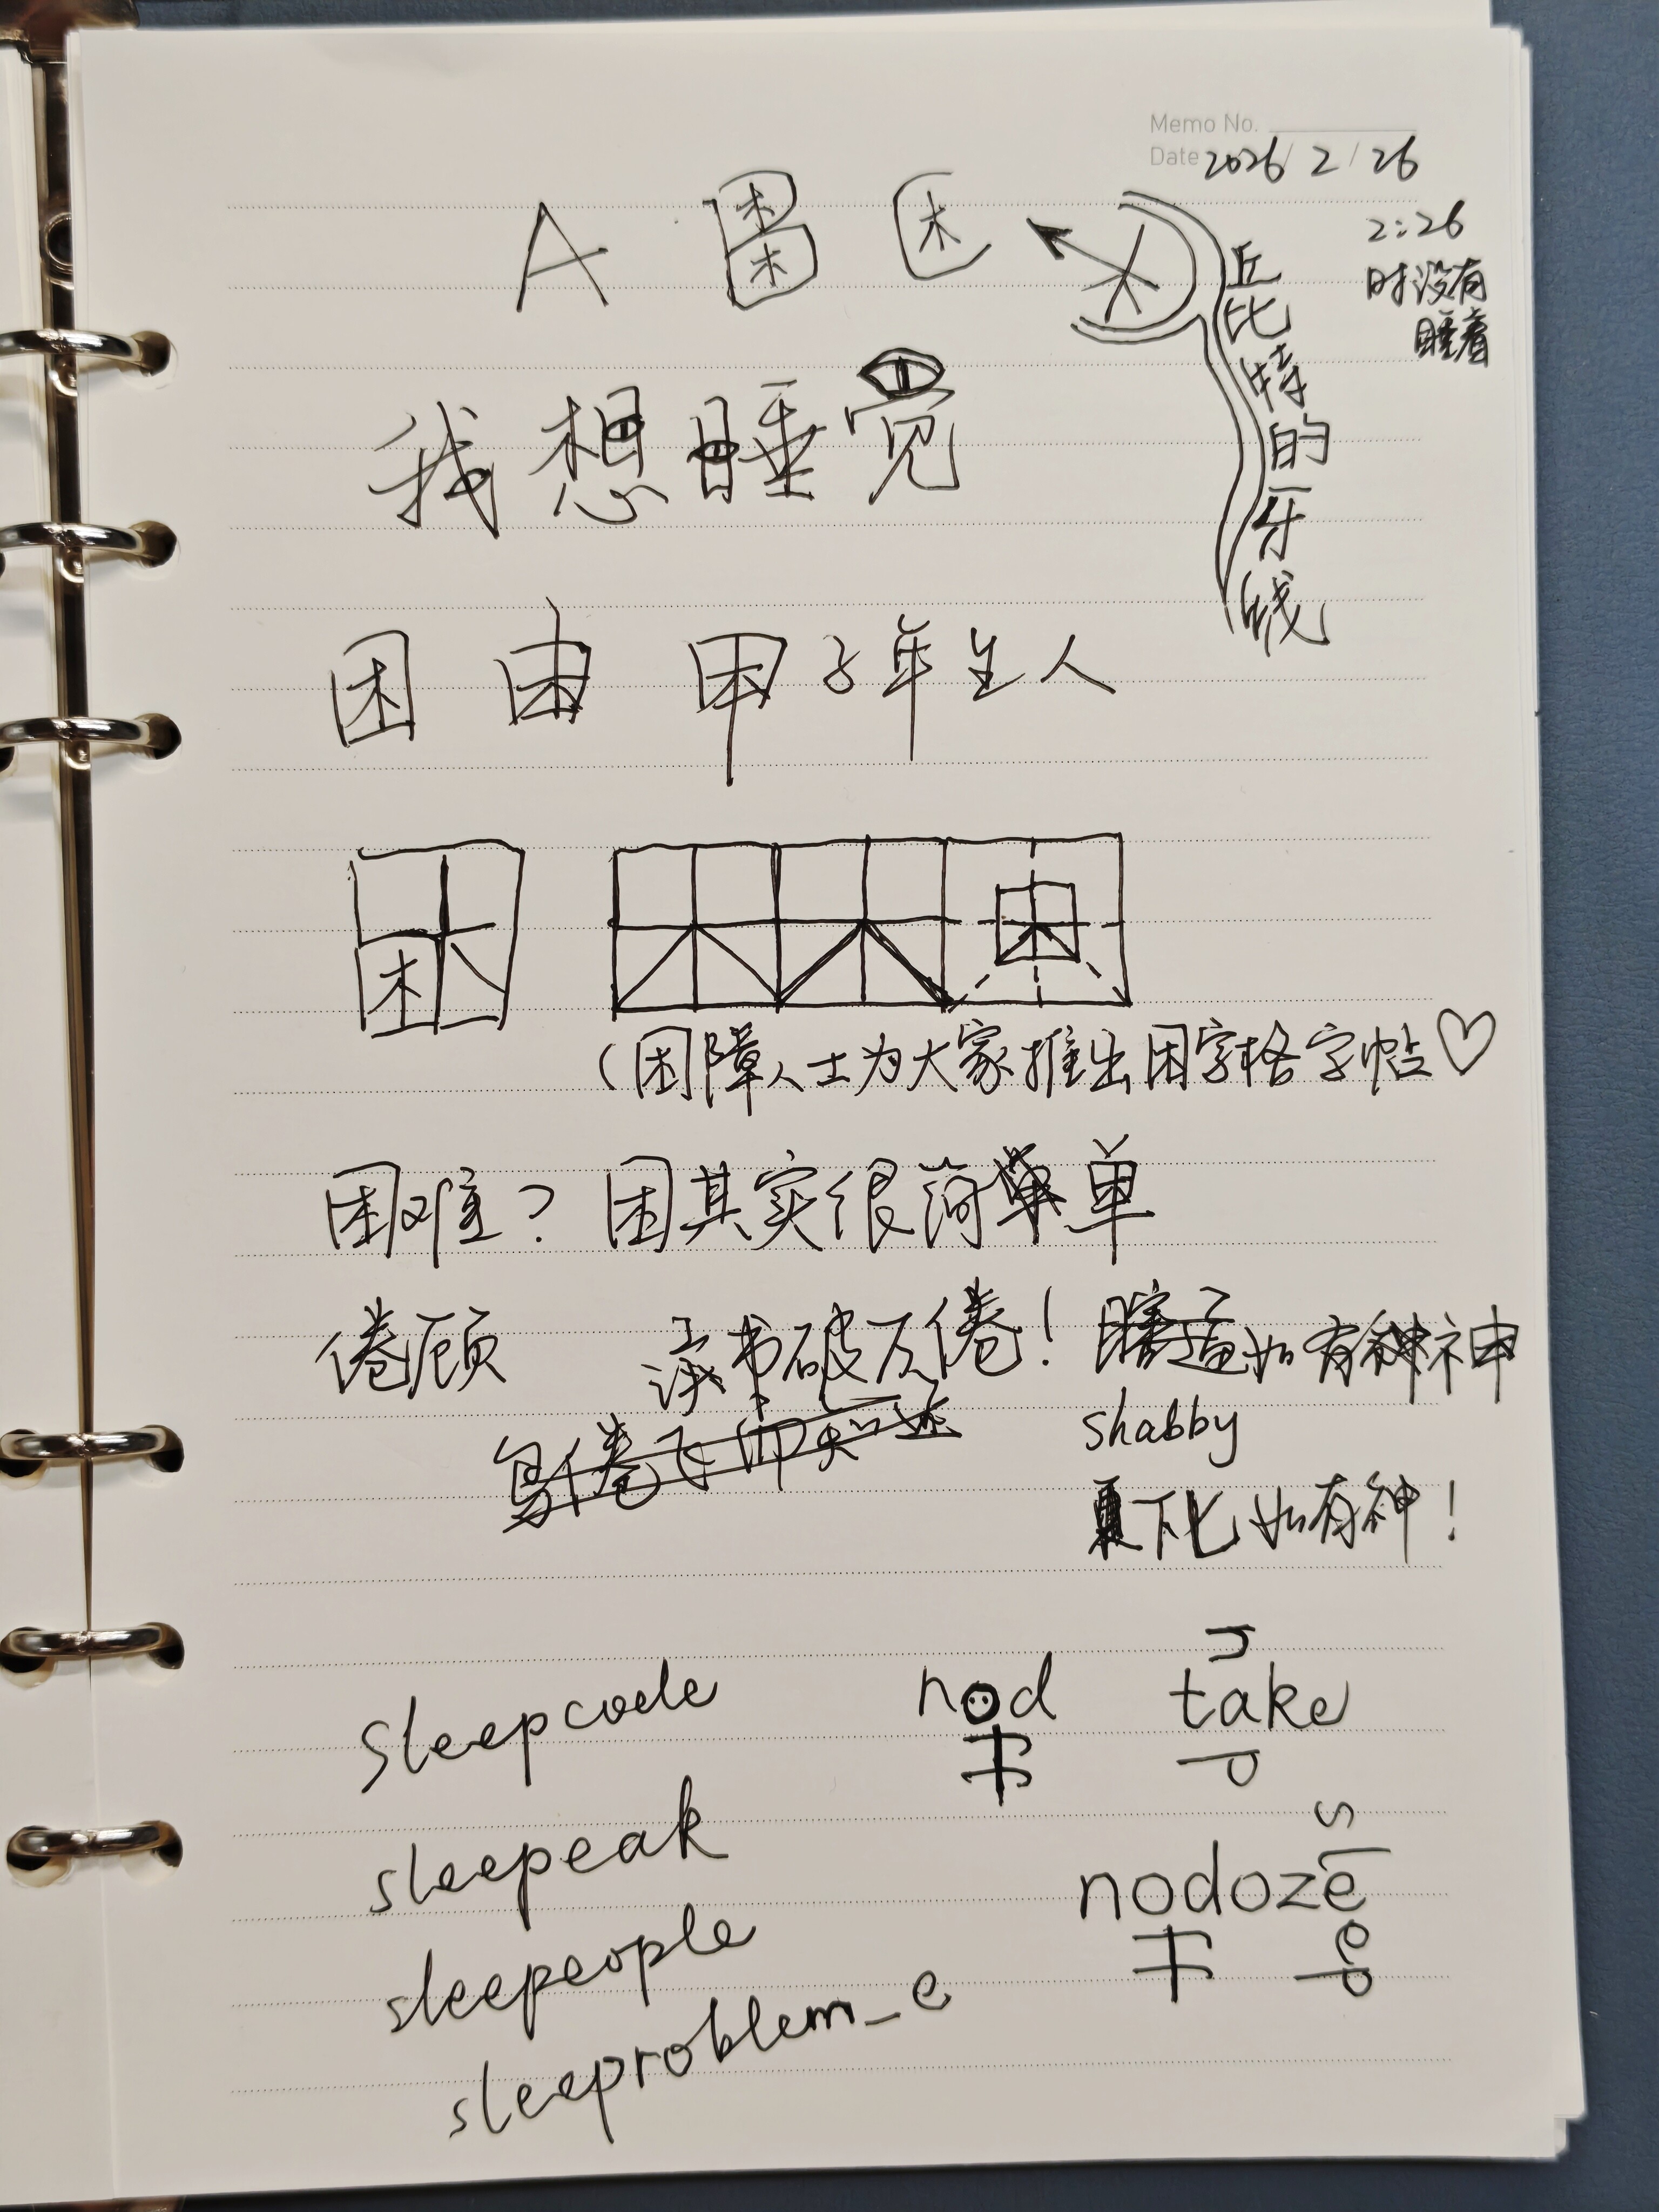 Memo No.
Date 2026 / 2 / 26
2:26
时没有
睡着
A
丘比特的牙线
我想睡觉
困 由 甲子年生人
困
(困障人士为大家推出困字格字帖♡
困难? 困其实很简单
倦顾 读书破万倦! 如有神
shabby
夏下匕如有神!
sleepcode
nod
take
sleepeak
nodoze
sleepeople
sleeproblem_e